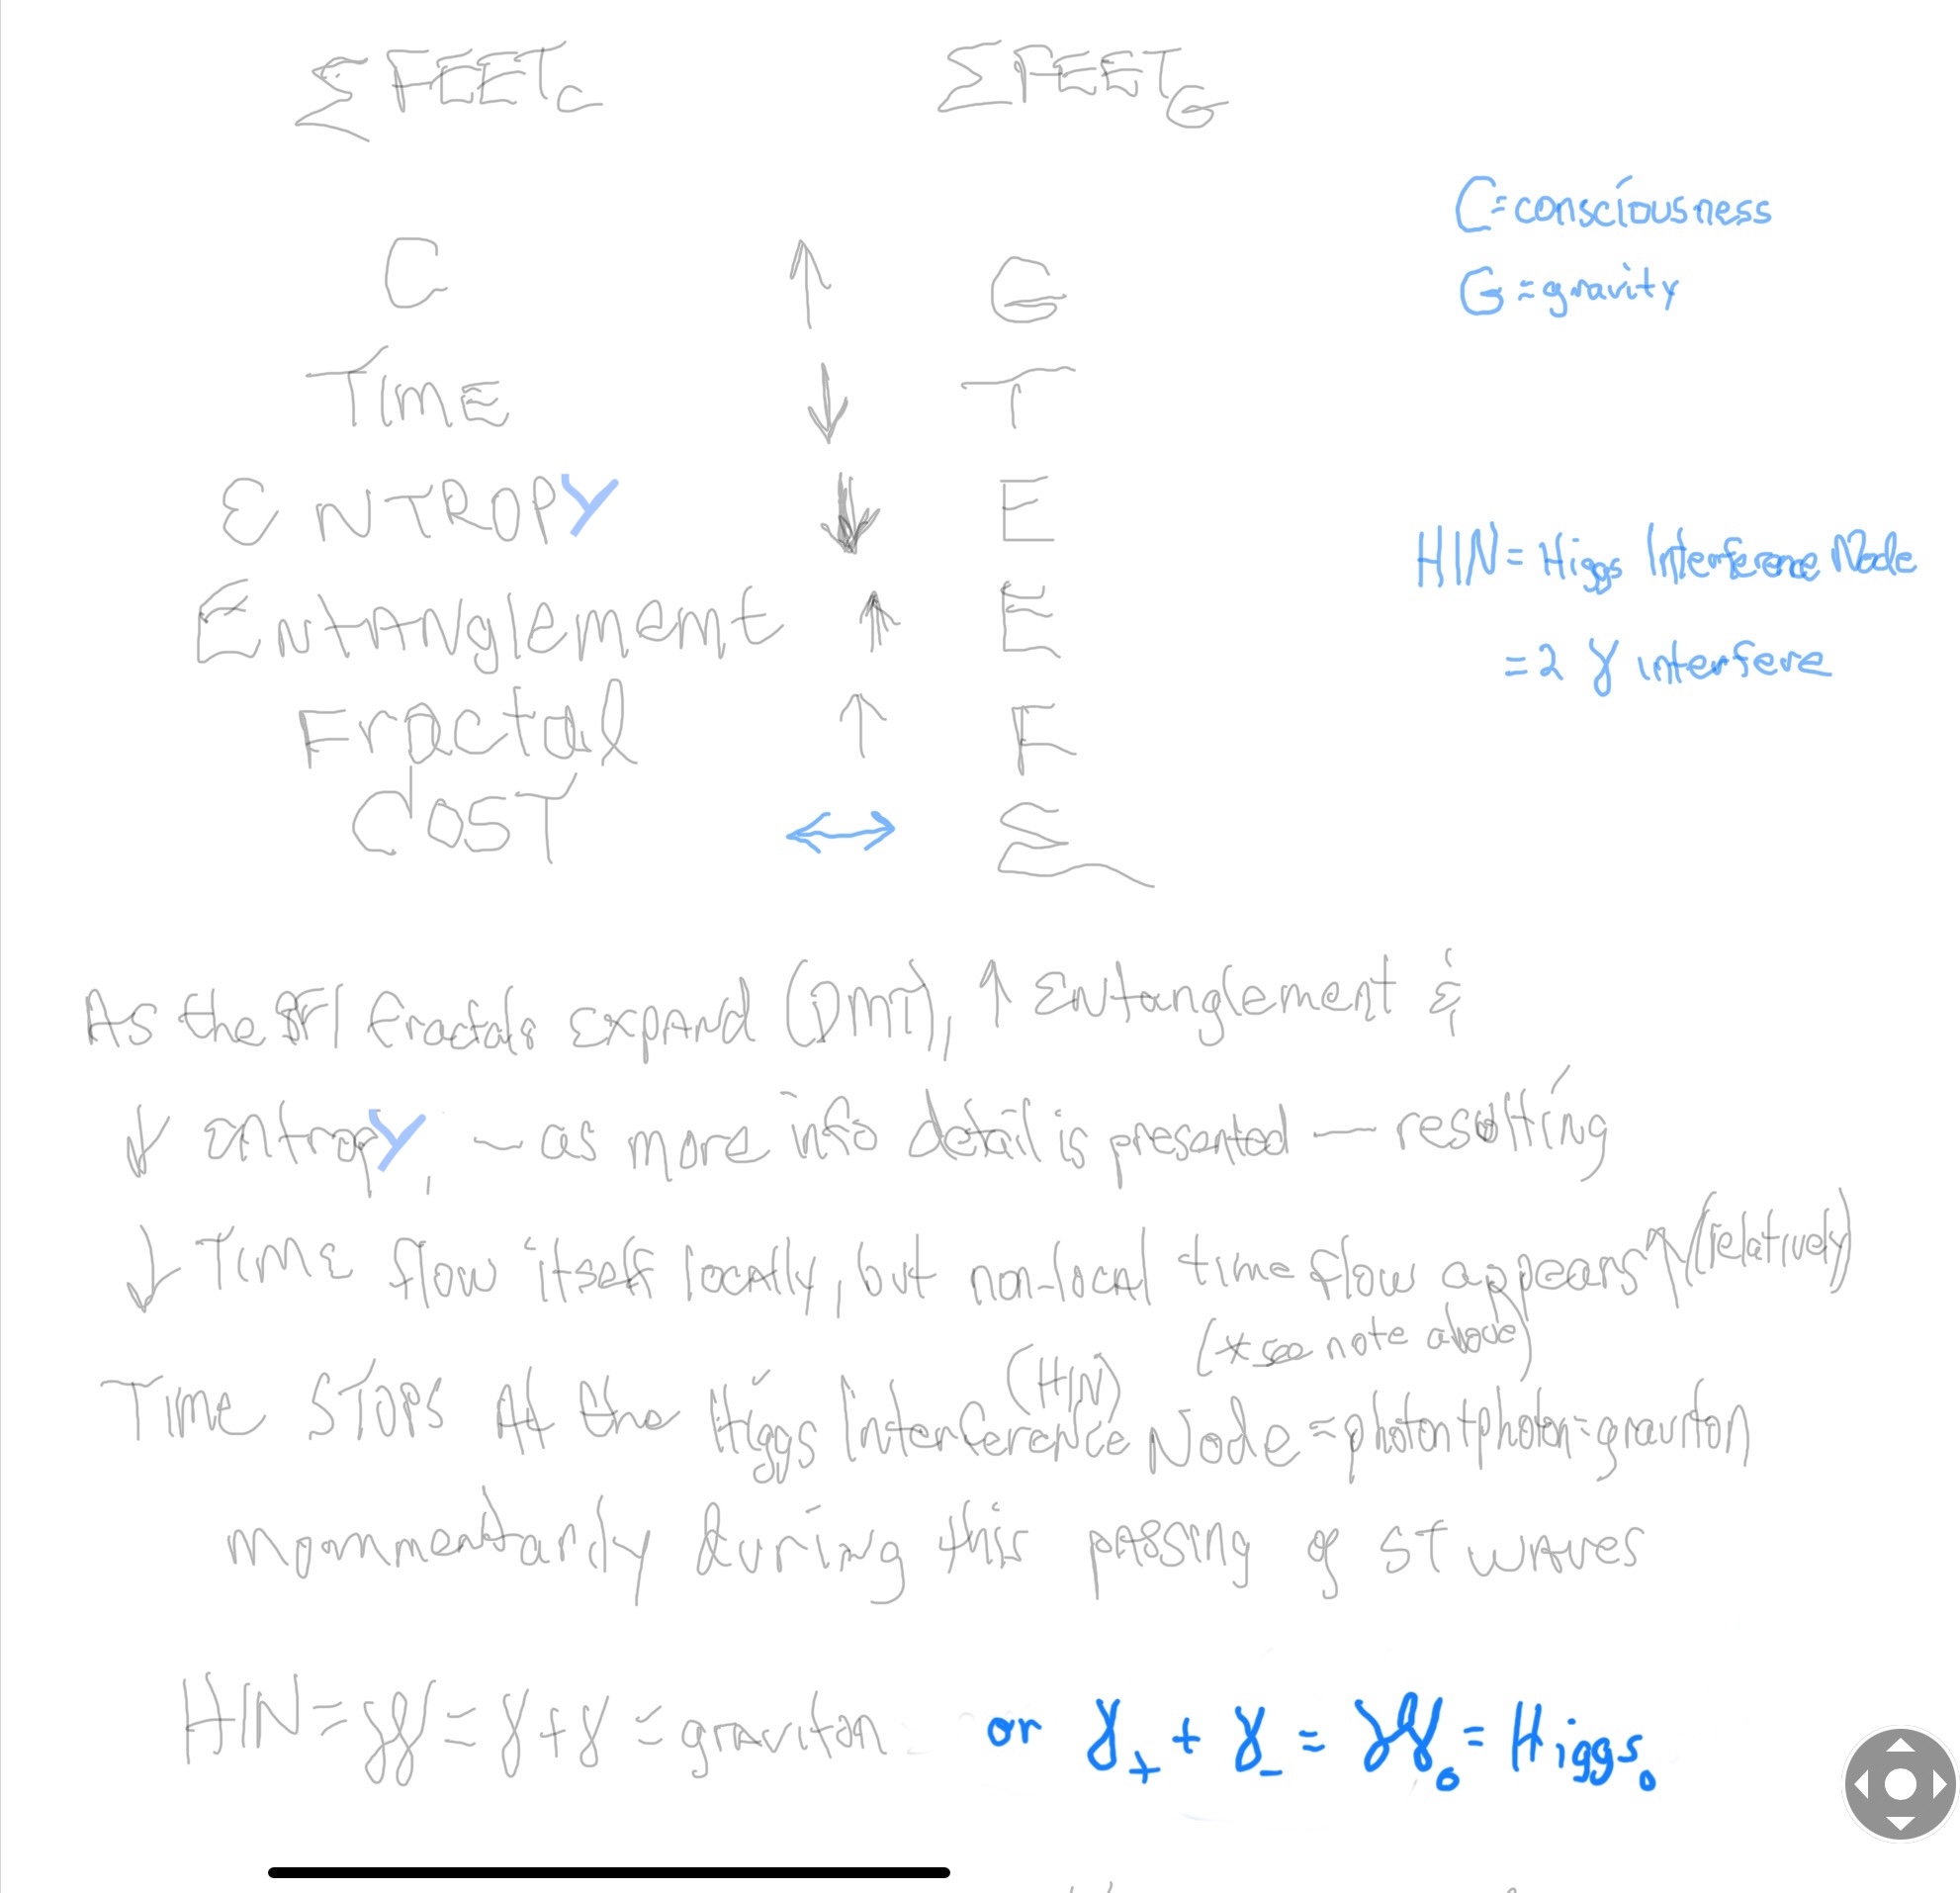 ΣFEET_C ΣFEET_G
C ↑ G
C=consciousness
G=gravity
TIME ↓ T
ENTROPY ↓ E
Entanglement ↑ E
HIN=Higgs Interference Node
=2 γ interfere
Fractal ↑ F
COST ↔ Σ
As the fractals expand, ↑ Entanglement &
↓ entropy, — as more info detail is presented — resulting
↓ Time flow itself locally, but non-local time flow appears ↑ (relatively)
(* see note above)
(HIN)
TIME STOPS At the Higgs Interference Node=photon+photon=graviton
mommentarily during this passing of ST waves
HIN=γγ=γ+γ=graviton or γ₊ + γ₋ = γγ₀ = Higgs₀